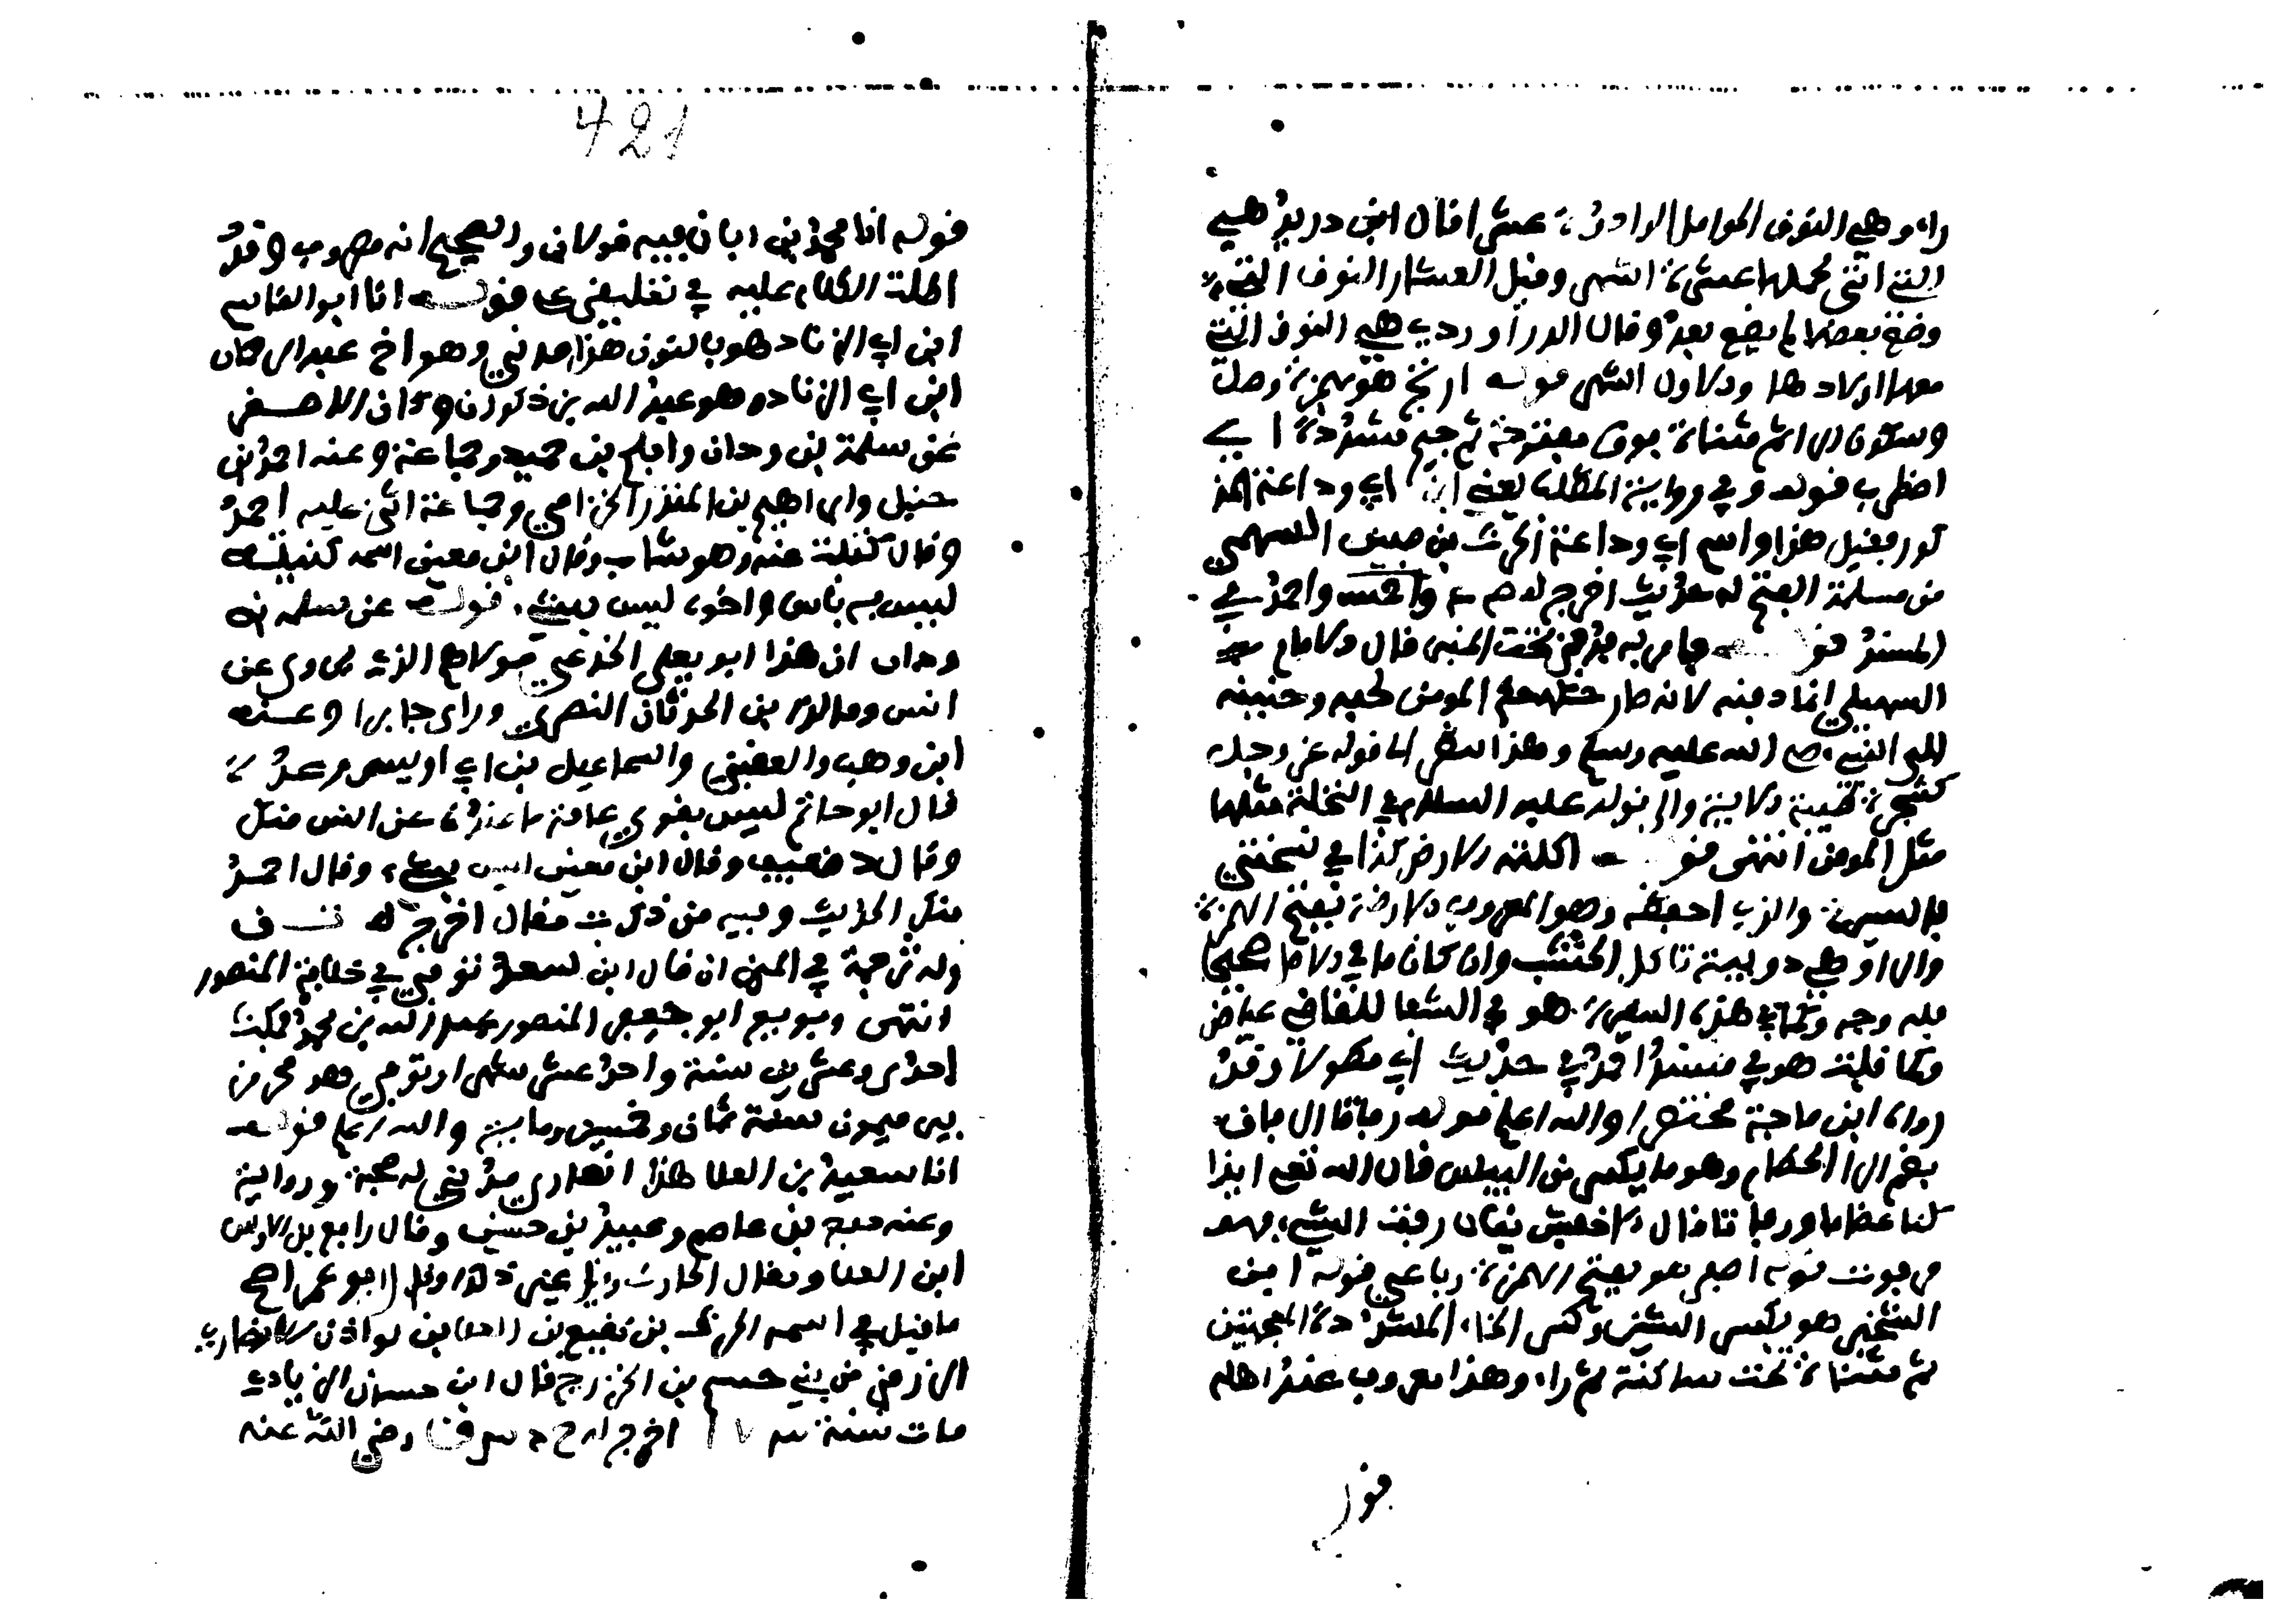 راء وهي النوق الحوامل الواحدة عشرا قال ابن دريد هي
التي اتى لحملها عشرة اشهر وقيل العشار النوق التي
وضع بعضها لم يضع بعد وقال الدراوردي هي النوق التي
معها اولادها والاول اشهر قوله ارتج هو بهمزة وصل
وسكون الراء ثم مثناة فوق مفتوحة ثم جيم مشددة اي
اضطرب قوله وفي رواية المطلب يعني ابن ابي وداعة المذ
كور قبيل هذا واسم ابي وداعة الحرث بن صبيرة السهمي
من مسلمة الفتح له حديث اخرج له م والخمسة واحمد في
المسند قوله فامر به فدفن تحت المنبر قال الامام
السهيلي انما دفنه لانه صار حكمه حكم المومن لحبه وحنينه
الى النبي صلى الله عليه وسلم وهذا ينظر الى قوله عز وجل
كشجرة طيبة الاية والى قوله عليه السلام في النخلة مثلها
مثل المومن انتهى قوله اكلته الارض كذا في نسختي
بالسيرة والذي احفظه وهو المعروف الارضة بفتح الهمزة
والراء وهي دويبة تاكل الخشب وان كان ما في الاصل صحيحا
فله وجه وكما في هذه السيرة هو في الشفا للقاضي عياض
وكما قلته هو في مسند احمد في حديث ابي مطولا وقد
رواه ابن ماجة مختصرا والله اعلم قوله رفاتا الرفات
بضم الراء الحطام وهو ما يكسر من اليبس قال الله تعالى ايذا
كنا عظاما ورفاتا قال الاخفش يقال رفت الشيء فهو
مرفوت قوله اصغر هو بفتح الهمزة رباعي قوله ابن
الشخير هو بكسر الشين وكسر الخاء المشددة المعجمتين
ثم مثناة تحت ساكنة ثم راء وهذا معروف عند اهله
قوله
421
قوله انا محمد بن ابان فيه قولان والصحيح انه مصروف وقد
اطلت الكلام عليه في تعليقي على قوله انا ابو القاسم
ابن ابي الزناد هو بالنون هذا مدني وهو اخ عبد الرحمان
ابن ابي الزناد وهو عبد الله بن ذكوان وكان الاصغر
عن سلمة بن وردان وافلح بن حميد وجماعة وعنه احمد بن
حنبل وابراهيم بن المنذر الحزامي وجماعة اثنى عليه احمد
وقال كتبت عنه وهو شاب وقال ابن معين اسمه كنيته
ليس به باس واخوه ليس بشيء قوله عن سلمة بن
وردان ان هذا ابو يعلى الجندعي مولاهم الذي يروي عن
انس ومالك بن الحدثان النصري وراى جابرا وعنه
ابن وهب والقعنبي واسماعيل بن ابي اويس وعدة
قال ابو حاتم ليس بقوي عامة ما عنده عن انس منكر
وقال د ضعيف وقال ابن معين ليس بشيء وقال احمد
منكر الحديث وفيه من ذكرت مقال اخرج له ت ق
وله ترجمة في الميزان قال ابن سعد توفي في خلافة المنصور
انتهى وبويع ابو جعفر المنصور عبد الله بن محمد فمكث
احدى وعشرين سنة واحد عشر شهرا وتوفي وهو محرم من
بير ميمون سنة ثمان وخمسين ومايه والله اعلم قوله
انا سعيد بن المعلا هذا انصاري مدني له صحبة ورواية
وعنه حفص بن عاصم وعبيد بن حنين وقال رافع بن اوس
ابن المعلا ويقال الحارث وقيل غير ذلك وقال ابو عمر اصح
ما قيل في اسمه الحرث بن نفيع بن المعلا بن لوذان الانصاري
الزرقي من بني جشم بن الخزرج قال ابن حسان الزيادي
مات سنة ٧٣ اخرج له خ د س ق رضي الله عنه